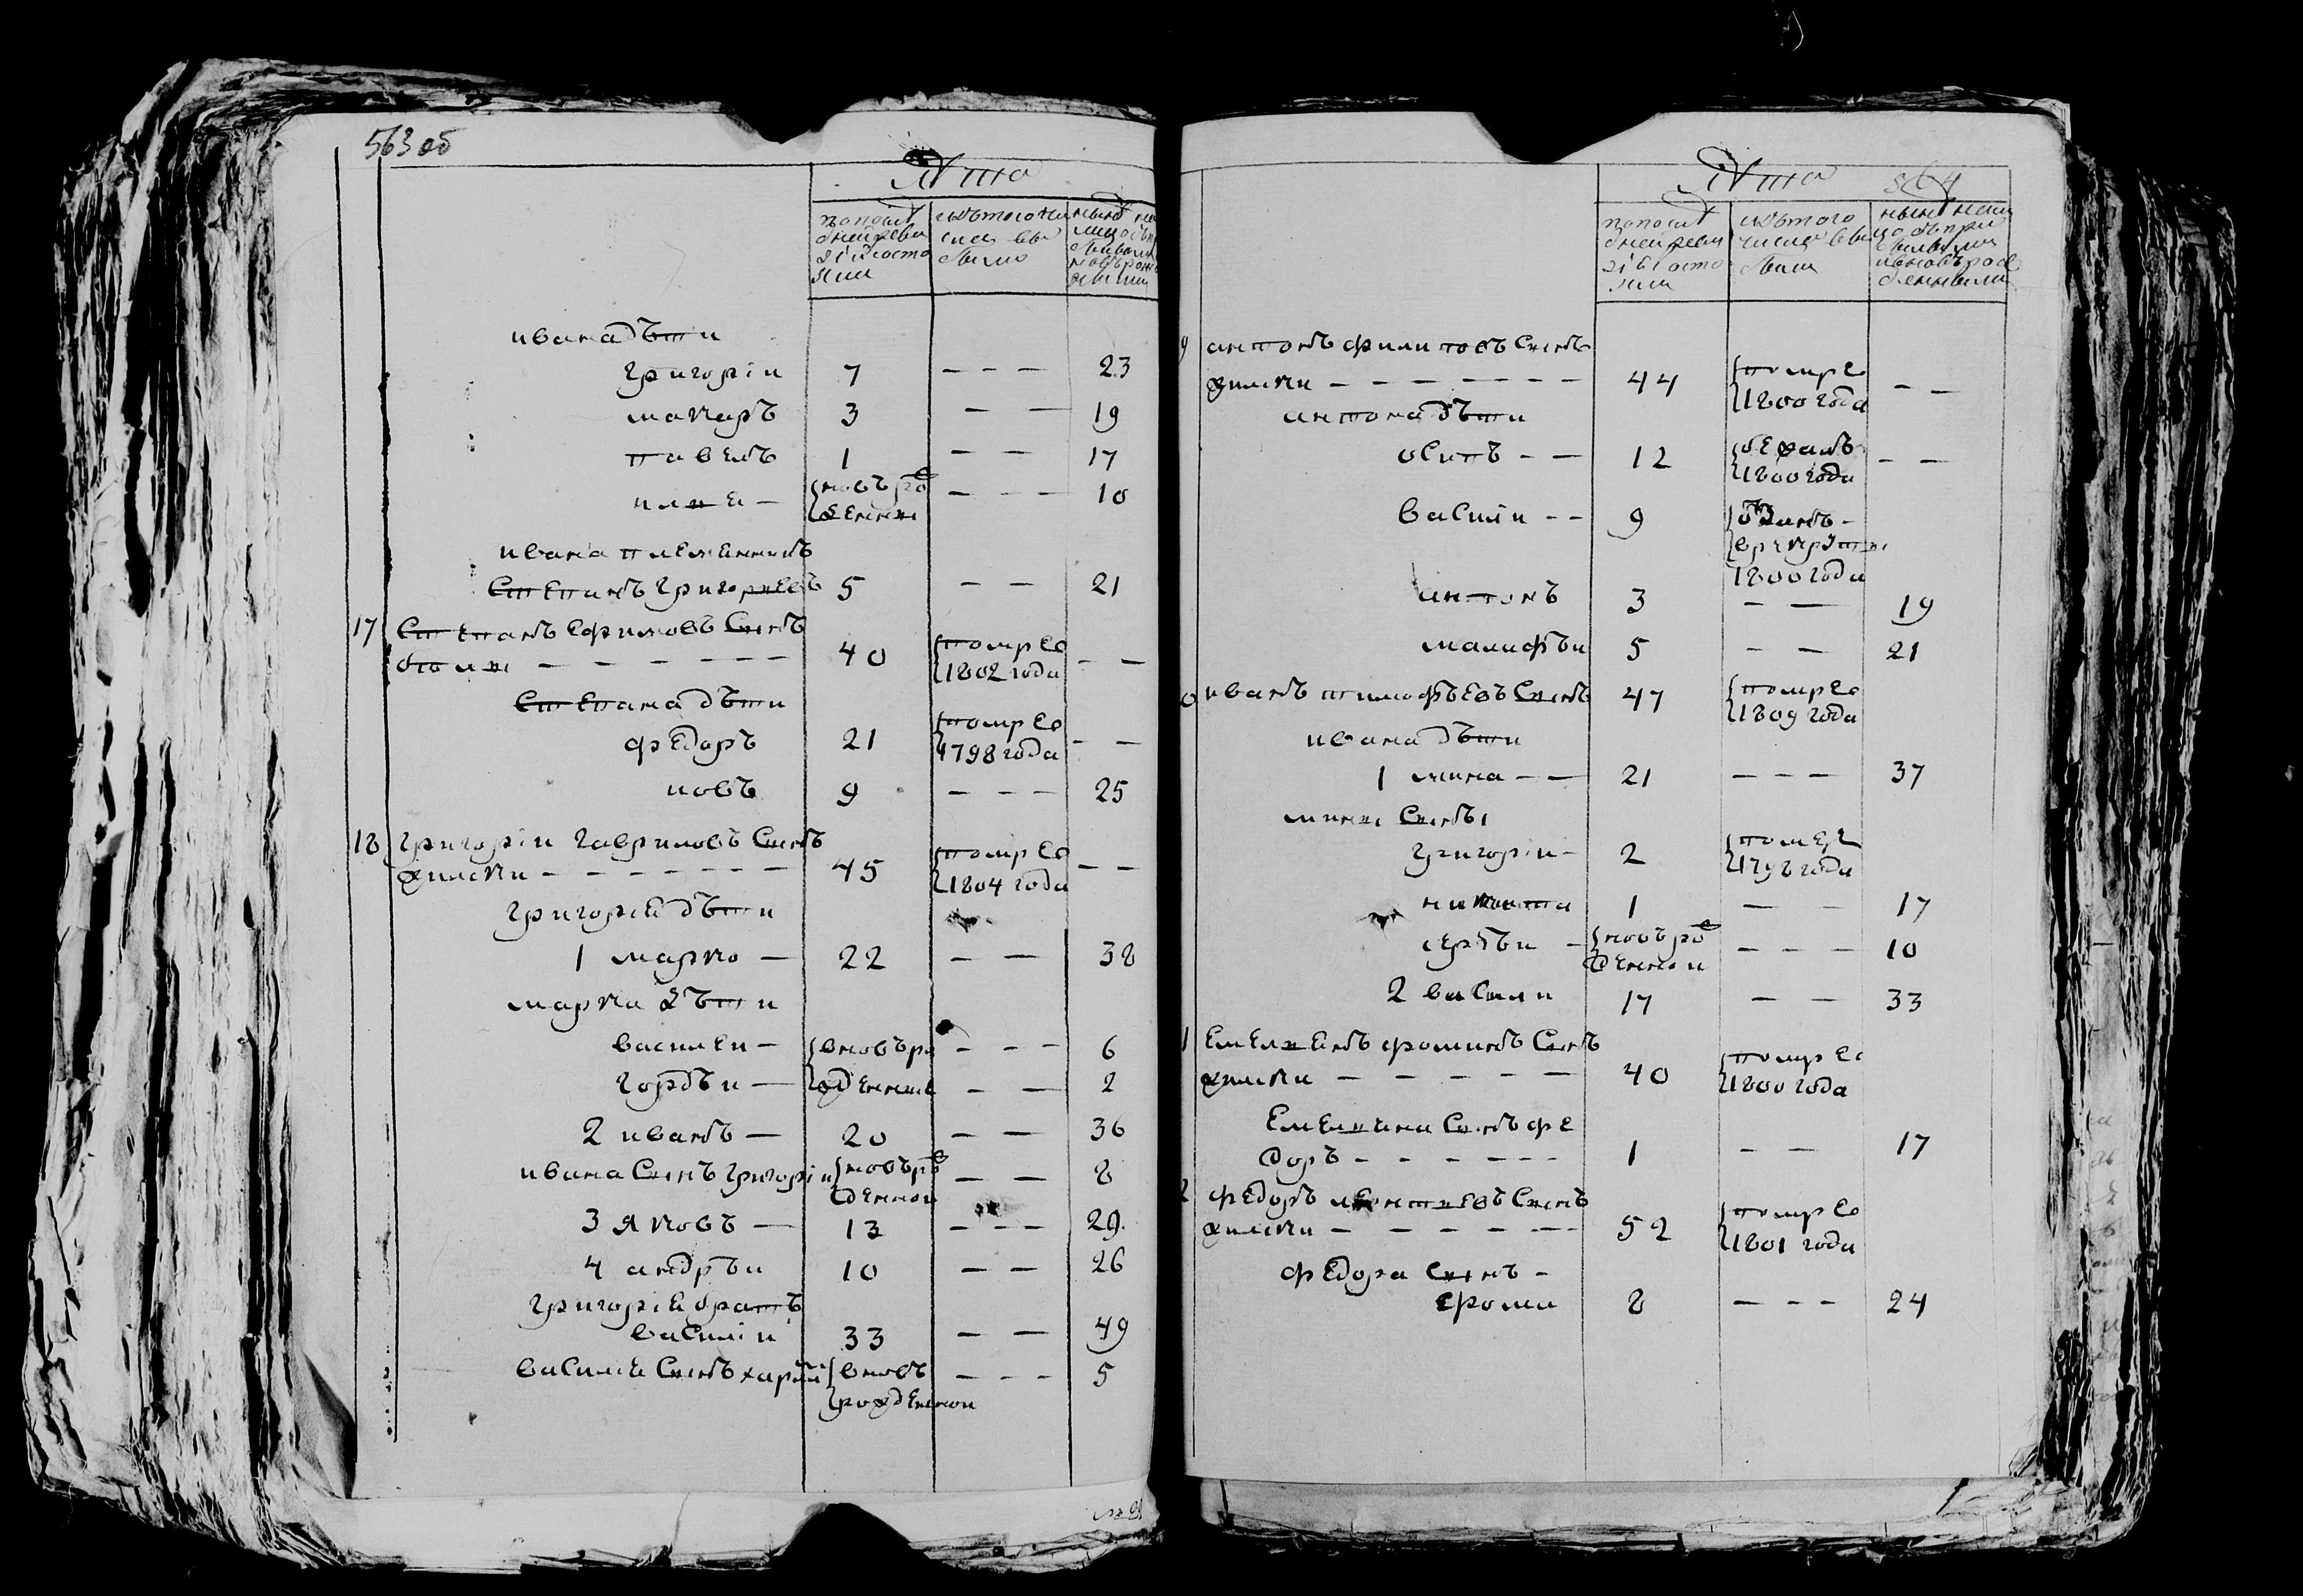 563 об
Лѣта
по послѣ
дней реви
зіи состо
яли
изъ того чи
сла вы
было
ивана дѣти
григоріи 7 — — — 23
макаръ 3 — — 19
павелъ 1 — — 17
илья — новъ рож
денны — — — 10
ивана племенникъ
Степанъ григорьевъ 5 — — 21
17 Степанъ Ефимовъ Сынъ
40 помре
1802 года — —
Степана дѣти
федоръ 21 помре
1798 года — —
иовъ 9 — — — 25
18 григоріи гавриловъ Сынъ
45 помре
1804 года — —
григоріе дѣти
1 марко — 22 — — 38
марка дѣти
василеи — вновь ро — — — 6
гордѣи — жденные — — 2
2 иванъ — 20 — — 36
ивана Сынъ григоріи новъ рож
денной — — 8
3 Яковъ — 13 — — — 29
4 андрѣи 10 — — 26
григоріе братъ
василіи 33 — — 49
василіе Сынъ вновь — — — 5
рожденнои
Лѣта 564
по послѣ
дней реви
зіи состо
яли
изъ того
числа вы
были
антонъ филиповъ Сынъ
44 помре
1800 года — —
антона дѣти
осипъ — — 12 бежалъ
1800 года — —
василіи — — 9 отданъ —
в рекруты
1800 года
антонъ 3 — — 19
малафѣи 5 — — 21
0 иванъ тимофѣевъ Сынъ 47 помре
1809 года
ивана дѣти
1 мина — — 21 — — — 37
мины Сыны
григории — 2 помер
1798 года
никита 1 — — 17
сергѣи — новъ рож
денной — — — 10
2 василии 17 — — 33
1 Емельенъ фоминъ Сынъ
40 помре
1800 года
Емельяна Сынъ фе
доръ — — — — — — 1 — — 17
2 федоръ леонтьевъ Сынъ
52 помре
1801 года
федора Сынъ —
фома 8 — — — 24